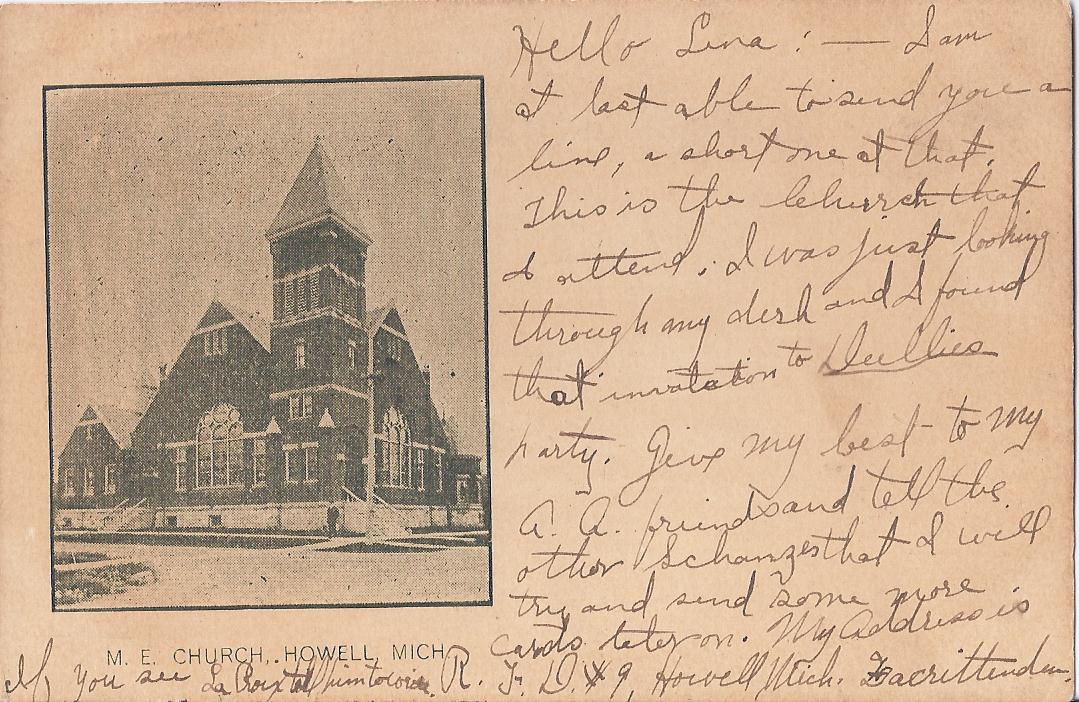 Hello Lena : — I am
at last able to send you a
line, a short one at that.
This is the Church that
I attend. I was just looking
through my desk and I found
that invatation to Dellies
party. Give my best to my
A. A. friends and tell the
other Schanzes that I will
try and send some more
cards later on. My Address is
R. F. D. # 9, Howell Mich.
M. E. CHURCH, HOWELL, MICH.
If you see La Croix tell him to